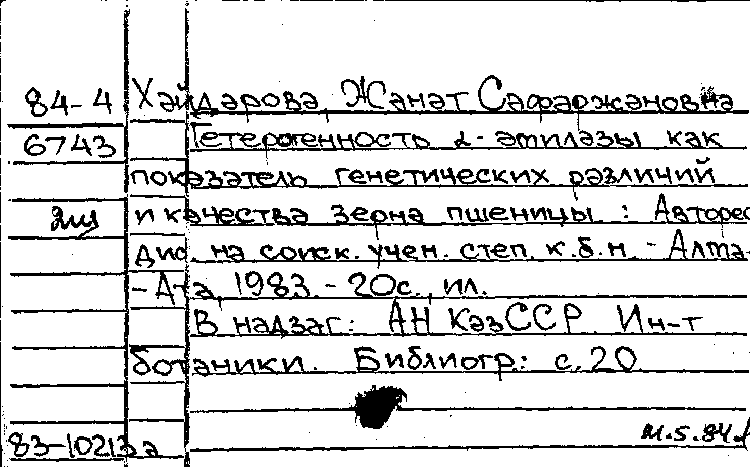 84-4 Хайдарова, Жанат Сафаржановна
6743 Гетерогенность α-амилазы как
показатель генетических различий
и качества зерна пшеницы : Авторес
дис. на соиск. учен. степ. к.б.н. - Алма-
-Ата, 1983. - 20с., ил.
В надзаг.: АН КазССР. Ин-т
ботаники. Библиогр.: с. 20
83-10213а
М.5.84.